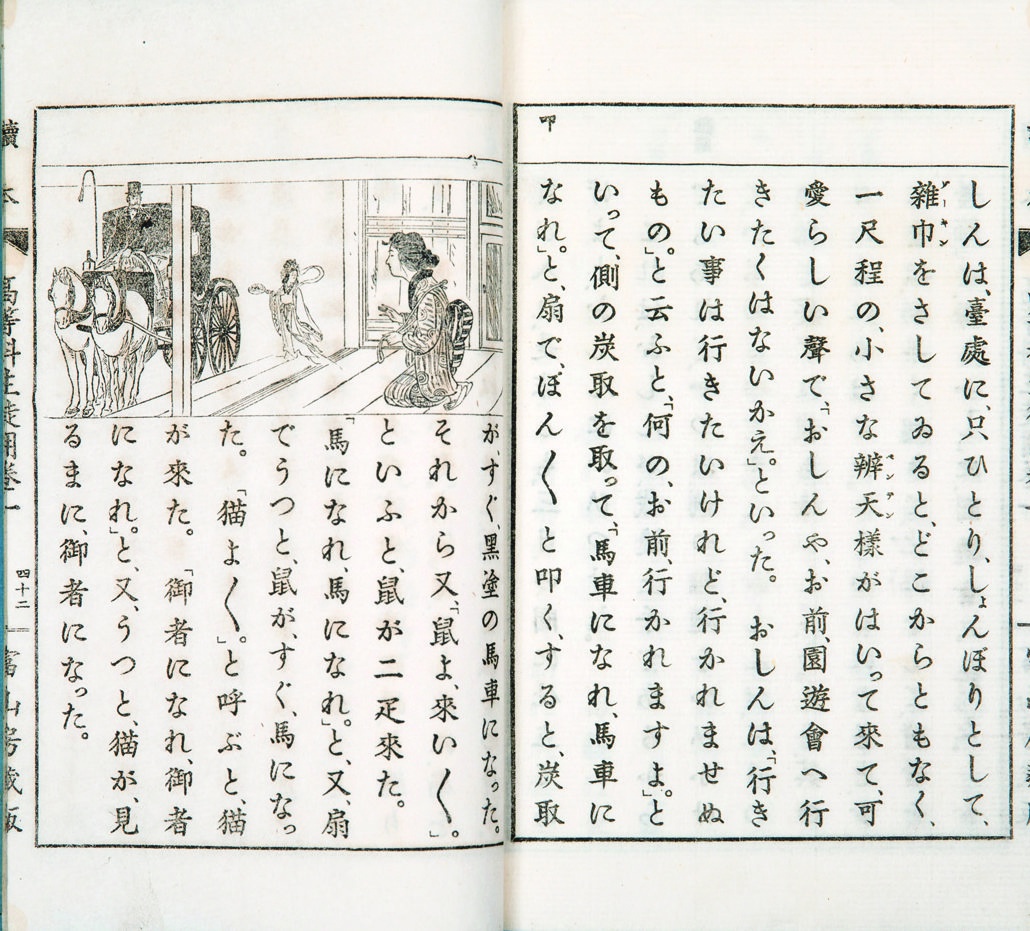 叩
しんは、臺處に、只ひとり、しょんぼりとして、
雜巾をさしてゐると、どこからともなく、
ゾーキン
一尺程の、小さな辨天樣がはいって來て、可
ベンテン
愛らしい聲で、「おしんや、お前、園遊會へ行
きたくはないかえ」。といった。 おしんは、「行き
たい事は行きたいけれど、行かれませぬ
もの」。と云ふと、「何の、お前、行かれますよ」。と
いって、側の炭取を取って、「馬車になれ、馬車に
なれ」。と、扇で、ぽん〱と叩く、すると、炭取
が、すぐ、黑塗の馬車になった。
それから又、「鼠よ、來い〱」。
といふと、鼠が二疋來た。
「馬になれ、馬になれ」。と、又、扇
でうつと、鼠が、すぐ、馬になっ
た。 「猫よ〱」。と呼ぶと、猫
が來た。 「御者になれ、御者
になれ」。と、又、うつと、猫が、見
るまに、御者になった。
讀本
高等科生徒用卷一
四十二
富山房藏版